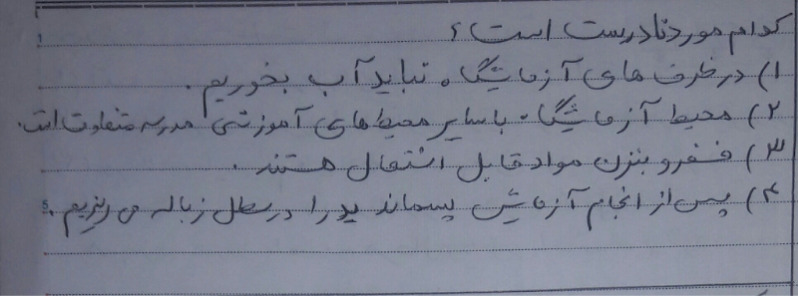 کدام مورد نادرست است؟
۱) در ظرف های آزمایشگاه نباید آب بخوریم.
۲) محیط آزمایشگاه با سایر محیط های آموزشی مدرسه متفاوت است.
۳) فسفر و بنزن مواد قابل اشتعال هستند.
۴) پس از انجام آزمایش پسماند ید را در سطل زباله می ریزیم.